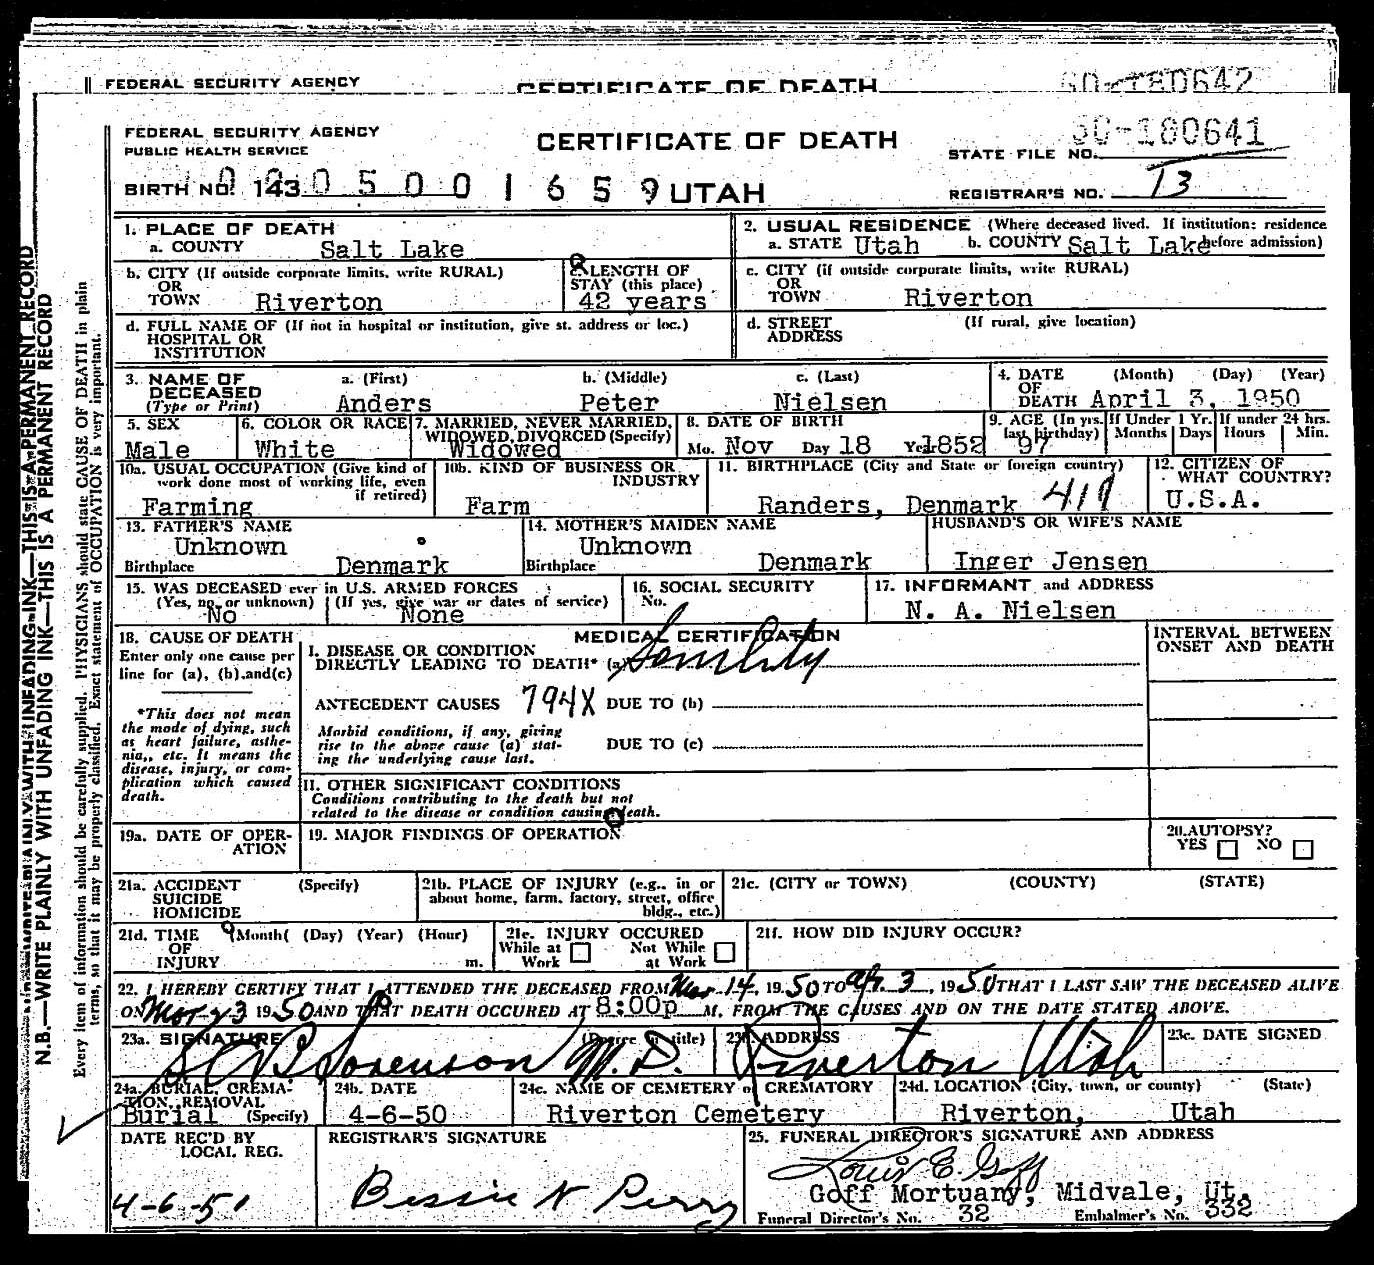 FEDERAL SECURITY AGENCY CERTIFICATE OF DEATH
FEDERAL SECURITY AGENCY
PUBLIC HEALTH SERVICE
CERTIFICATE OF DEATH
STATE FILE NO. 50-180641
BIRTH NO. 143 0 5 0 0 1 6 5 9 UTAH
REGISTRAR'S NO. 13
1. PLACE OF DEATH
a. COUNTY Salt Lake
2. USUAL RESIDENCE (Where deceased lived. If institution: residence before admission)
a. STATE Utah b. COUNTY Salt Lake
b. CITY (If outside corporate limits, write RURAL)
OR
TOWN Riverton
LENGTH OF
STAY (this place)
42 years
c. CITY (if outside corporate limits, write RURAL)
OR
TOWN Riverton
d. FULL NAME OF (If not in hospital or institution, give st. address or loc.)
HOSPITAL OR
INSTITUTION
d. STREET (If rural, give location)
ADDRESS
3. NAME OF
DECEASED
(Type or Print)
a. (First) b. (Middle) c. (Last)
Anders Peter Nielsen
4. DATE (Month) (Day) (Year)
OF
DEATH April 3, 1950
5. SEX
Male
6. COLOR OR RACE
White
7. MARRIED, NEVER MARRIED,
WIDOWED, DIVORCED (Specify)
Widowed
8. DATE OF BIRTH
Mo. Nov Day 18 Year 1852
9. AGE (In yrs. last birthday) 97
If Under 1 Yr. Months Days
If under 24 hrs. Hours Min.
10a. USUAL OCCUPATION (Give kind of
work done most of working life, even
if retired)
Farming
10b. KIND OF BUSINESS OR
INDUSTRY
Farm
11. BIRTHPLACE (City and State or foreign country)
Randers, Denmark
12. CITIZEN OF
WHAT COUNTRY?
U.S.A.
13. FATHER'S NAME
Unknown
Birthplace Denmark
14. MOTHER'S MAIDEN NAME
Unknown
Birthplace Denmark
HUSBAND'S OR WIFE'S NAME
Inger Jensen
15. WAS DECEASED ever in U.S. ARMED FORCES
(Yes, no, or unknown) (If yes, give war or dates of service)
No None
16. SOCIAL SECURITY
No.
17. INFORMANT and ADDRESS
N. A. Nielsen
18. CAUSE OF DEATH
Enter only one cause per
line for (a), (b), and (c)
*This does not mean
the mode of dying, such
as heart failure, asthe-
nia, etc. It means the
disease, injury, or com-
plication which caused
death.
MEDICAL CERTIFICATION
INTERVAL BETWEEN
ONSET AND DEATH
I. DISEASE OR CONDITION
DIRECTLY LEADING TO DEATH* (a)
ANTECEDENT CAUSES 794X DUE TO (b)
Morbid conditions, if any, giving
rise to the above cause (a) stat-
ing the underlying cause last.
DUE TO (c)
II. OTHER SIGNIFICANT CONDITIONS
Conditions contributing to the death but not
related to the disease or condition causing death.
19a. DATE OF OPER-
ATION
19. MAJOR FINDINGS OF OPERATION
20. AUTOPSY?
YES NO
21a. ACCIDENT (Specify)
SUICIDE
HOMICIDE
21b. PLACE OF INJURY (e.g., in or
about home, farm, factory, street, office
bldg., etc.)
21c. (CITY or TOWN) (COUNTY) (STATE)
21d. TIME (Month) (Day) (Year) (Hour)
OF
INJURY m.
21e. INJURY OCCURED
While at Work Not While at Work
21f. HOW DID INJURY OCCUR?
22. I HEREBY CERTIFY THAT I ATTENDED THE DECEASED FROM Mar 14, 1950 TO Apr 3, 1950 THAT I LAST SAW THE DECEASED ALIVE
ON Mar 23 1950 AND THAT DEATH OCCURED AT 8:00p M. FROM THE CAUSES AND ON THE DATE STATED ABOVE.
23a. SIGNATURE (Degree or title)
Sorenson M.D.
ADDRESS
Riverton Utah
23c. DATE SIGNED
24a. BURIAL, CREMA-
TION, REMOVAL
Burial (Specify)
24b. DATE
4-6-50
24c. NAME OF CEMETERY or CREMATORY
Riverton Cemetery
24d. LOCATION (City, town, or county) (State)
Riverton, Utah
DATE REC'D BY
LOCAL REG.
4-6-51
REGISTRAR'S SIGNATURE
Bessie N Perry
25. FUNERAL DIRECTOR'S SIGNATURE AND ADDRESS
Louis E. Goff
Goff Mortuary, Midvale, Ut.
Funeral Director's No. 32 Embalmer's No. 332
N.B.—WRITE PLAINLY WITH UNFADING INK—THIS IS A PERMANENT RECORD
Every item of information should be carefully supplied. PHYSICIANS should state CAUSE OF DEATH in plain
terms, so that it may be properly classified. Exact statement of OCCUPATION is very important.